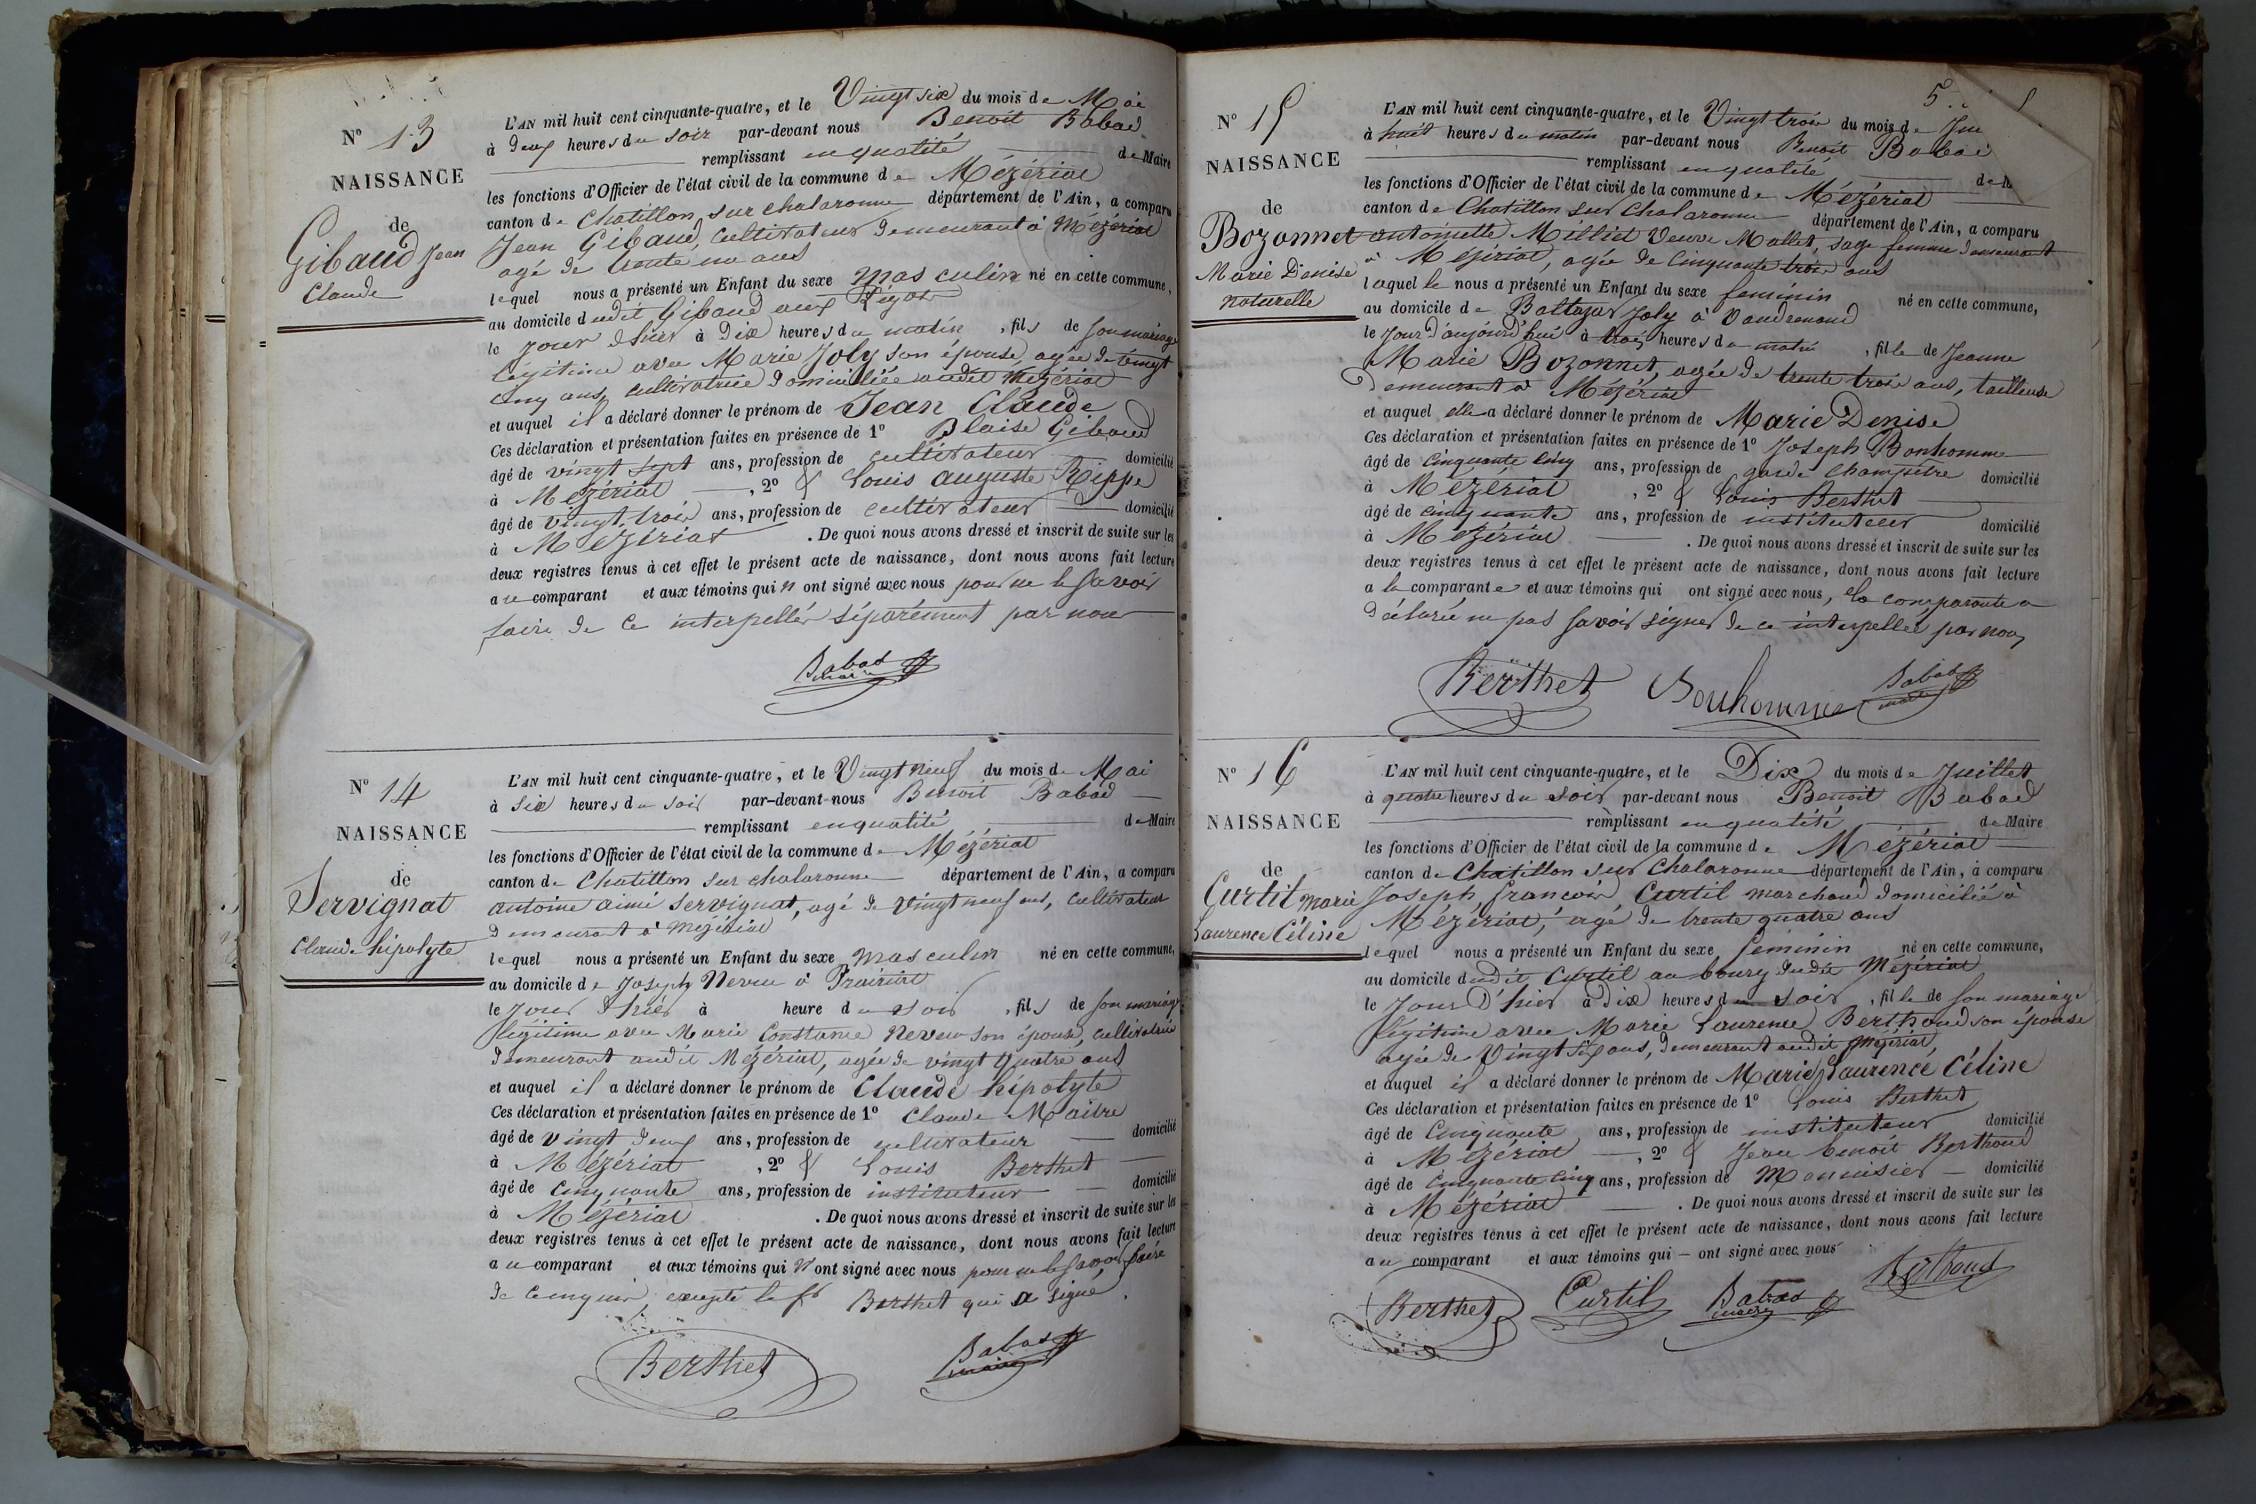 N° 13
NAISSANCE
de
Gibaud Jean
Claude
L'AN mil huit cent cinquante-quatre, et le Vingt six du mois de Mai
à deux heures du soir par-devant nous Benoit Babad
remplissant en qualité de Maire
les fonctions d'Officier de l'état civil de la commune de Mézériat
canton de Chatillon sur chalaronne département de l'Ain, a comparu
Jean Gibaud, cultivateur demeurant à Mézériat
agé de trente un ans
lequel nous a présenté un Enfant du sexe masculin né en cette commune,
au domicile dudit Gibaud aux
le jour d'hier à Dix heures du matin, fils de son mariage
légitime avec Marie Joly son épouse, agée de vingt
cinq ans, cultivatrice domiciliée audit Mézériat
et auquel il a déclaré donner le prénom de Jean Claude
Ces déclaration et présentation faites en présence de 1° Blaise Gibaud
âgé de vingt sept ans, profession de cultivateur domicilié
à Mézériat, 2° & Louis auguste Rippe
âgé de vingt trois ans, profession de cultivateur domicilié
à Mézériat. De quoi nous avons dressé et inscrit de suite sur les
deux registres tenus à cet effet le présent acte de naissance, dont nous avons fait lecture
au comparant et aux témoins qui n ont signé avec nous pour ne le savoir
faire de ce interpellés séparément par nous
Babad
maire
N° 14
NAISSANCE
de
Servignat
Claude hipolyte
L'AN mil huit cent cinquante-quatre, et le Vingt neuf du mois de Mai
à six heures du soir par-devant nous Benoit Babad
remplissant en qualité de Maire
les fonctions d'Officier de l'état civil de la commune de Mézériat
canton de Chatillon sur chalaronne département de l'Ain, a comparu
antoine aimé Servignat, agé de vingt neuf ans, cultivateur
demeurant à Mézériat
lequel nous a présenté un Enfant du sexe masculin né en cette commune,
au domicile de Joseph Neveu à
le jour d'hier à heure du soir, fils de son mariage
légitime avec Marie Constance Neveu son épouse, cultivatrice
demeurant audit Mézériat, agée de vingt quatre ans
et auquel il a déclaré donner le prénom de Claude hipolyte
Ces déclaration et présentation faites en présence de 1° Claude Maitre
âgé de vingt deux ans, profession de cultivateur domicilié
à Mézériat, 2° & Louis Berthet
âgé de cinquante ans, profession de instituteur domicilié
à Mézériat. De quoi nous avons dressé et inscrit de suite sur les
deux registres tenus à cet effet le présent acte de naissance, dont nous avons fait lecture
au comparant et aux témoins qui n'ont signé avec nous pour ne le savoir faire
de ce enquis excepté le sr Berthet qui a signé.
Berthet
Babad
maire
5
N° 15
NAISSANCE
de
Bozonnet
Marie Denise
naturelle
L'AN mil huit cent cinquante-quatre, et le Vingt trois du mois de
à huit heures du matin par-devant nous Benoit Babad
remplissant en qualité de
les fonctions d'Officier de l'état civil de la commune de Mézériat
canton de Chatillon sur Chalaronne département de l'Ain, a comparu
antoinette Milliet Veuve Mallet, sage femme demeurant
à Mézériat, agée de cinquante trois ans
laquelle nous a présenté un Enfant du sexe féminin né en cette commune,
au domicile de Baltazar Joly à Vaudrenand
le Jour d'aujourd'hui à trois heures du matin, fille de Jeanne
Marie Bozonnet, agée de trente trois ans, tailleuse
demeurant à Mézériat
et auquel elle a déclaré donner le prénom de Marie Denise
Ces déclaration et présentation faites en présence de 1° Joseph Bonhomme
âgé de cinquante cinq ans, profession de garde champêtre domicilié
à Mézériat, 2° & Louis Berthet
âgé de cinquante ans, profession de instituteur domicilié
à Mézériat. De quoi nous avons dressé et inscrit de suite sur les
deux registres tenus à cet effet le présent acte de naissance, dont nous avons fait lecture
a la comparante et aux témoins qui ont signé avec nous, la comparante a
déclaré ne pas savoir signer de ce interpellée par nous
Berthet Bonhomme Babad
maire
N° 16
NAISSANCE
de
Curtil Marie
Laurence Céline
L'AN mil huit cent cinquante-quatre, et le Dix du mois de Juillet
à quatre heures du soir par-devant nous Benoit Babad
remplissant en qualité de Maire
les fonctions d'Officier de l'état civil de la commune de Mézériat
canton de Chatillon sur Chalaronne département de l'Ain, a comparu
Joseph françois Curtil marchand domicilié à
Mézériat, agé de trente quatre ans
lequel nous a présenté un Enfant du sexe féminin né en cette commune,
au domicile dudit Curtil au bourg dudit Mézériat
le Jour d'hier à Dix heures du soir, fille de son mariage
légitime avec Marie Laurence Berthoud son épouse
agée de Vingt six ans, demeurant audit Mézériat,
et auquel il a déclaré donner le prénom de Marie Laurence Céline
Ces déclaration et présentation faites en présence de 1° Louis Berthet
âgé de Cinquante ans, profession de instituteur domicilié
à Mézériat, 2° & Jean benoit Berthoud
âgé de Cinquante cinq ans, profession de Menuisier domicilié
à Mézériat. De quoi nous avons dressé et inscrit de suite sur les
deux registres tenus à cet effet le présent acte de naissance, dont nous avons fait lecture
au comparant et aux témoins qui – ont signé avec nous
Berthet Curtil Babad Berthoud
maire